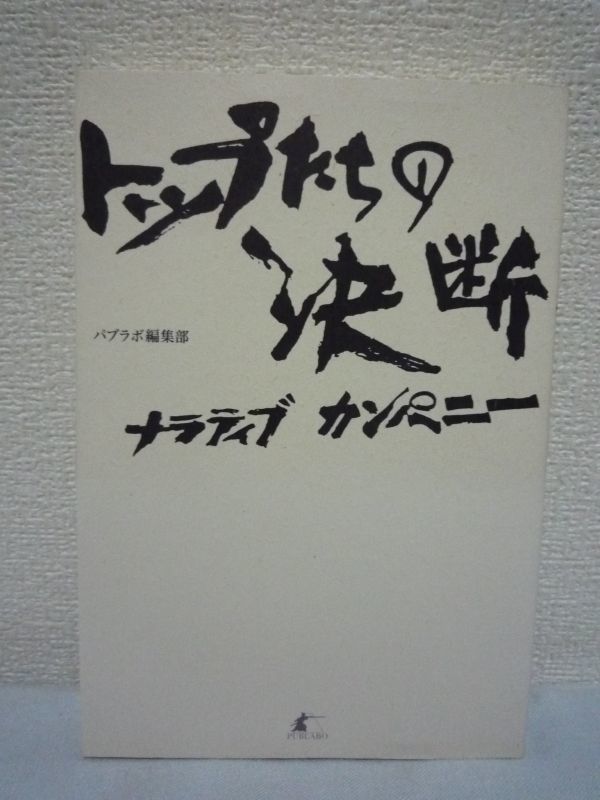 トップたちの
決断
パブラボ編集部
ナラティブ カンパニー
PUBLABO